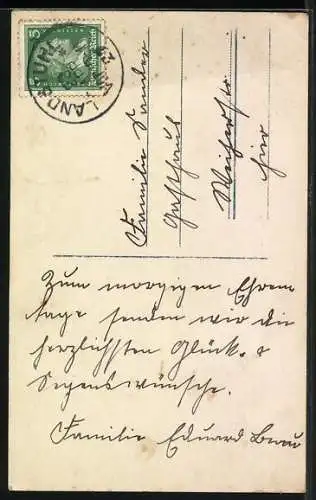 5
Deutsches Reich
LANDAU
Familie Sander
Gasthaus
Weiherstr
hier
Zum morgigen Ehren
tage senden wir die
herzlichsten Glück- &
Segenswünsche.
Familie Eduard